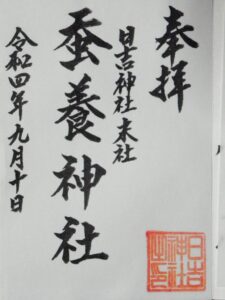 奉拝
日吉神社末社
蚕養神社
令和四年九月十日
日吉
神社
之印